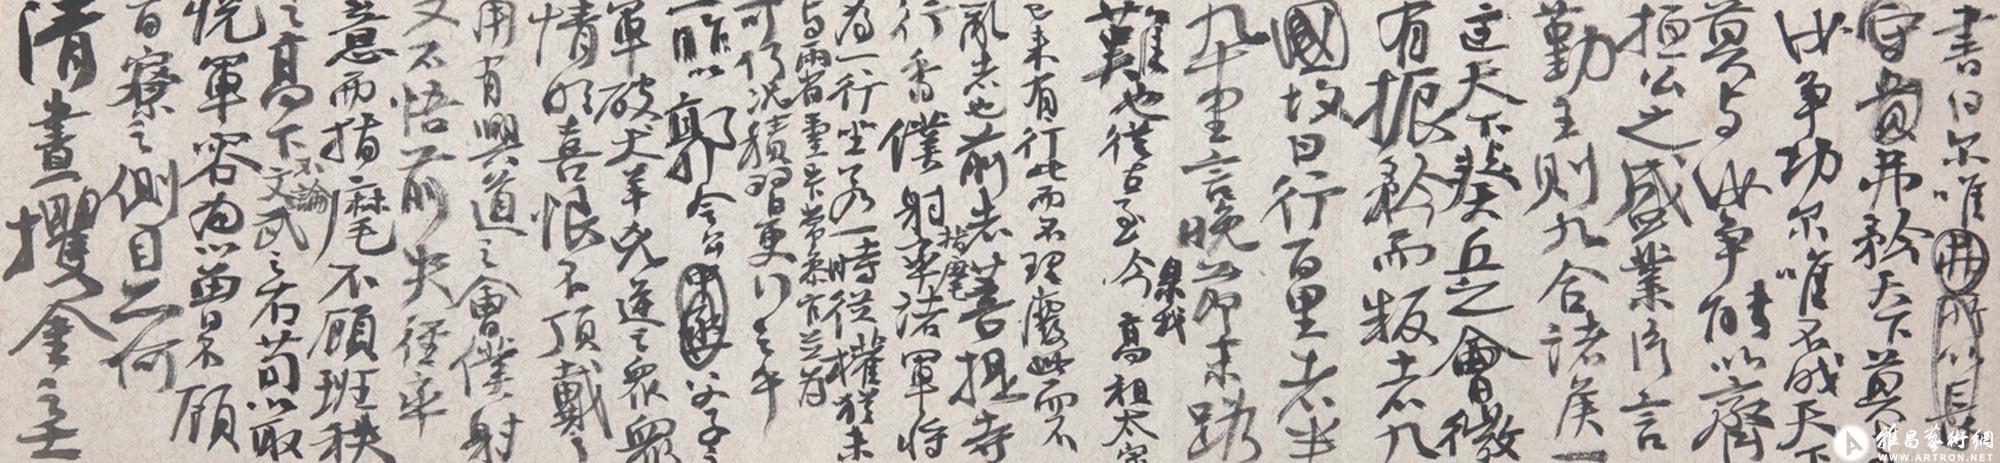 書曰尔唯弗所以長
守貴弗矜天下莫
汝争功尔唯不伐天下
莫与汝争能以齊
桓公之盛業片言
勤王則九合诸侯一
匡天下葵丘之會微
有振矜而叛者九
國故曰行百里者半
九十里言晚節末路
難也從古至今暨我高祖太宗
已来未有行此而不理廢此而不
亂者也前者菩提寺
行香僕射指麾率诸軍将
為一行坐若一時從權猶未
与兩省臺省常參官並為
可何况積習更行之乎
一昨以郭令公父子之
軍破犬羊凶逆之眾眾
情欣喜恨不頂戴之
用有興道之會僕射
又不悟前失徑率
意而指麾不顧班秩
之高下不論文武之右苟以取
悦軍容為心曾不顧
百寮之側目亦何
清晝攫金之士
雅昌藝術網
WWW.ARTRON.NET